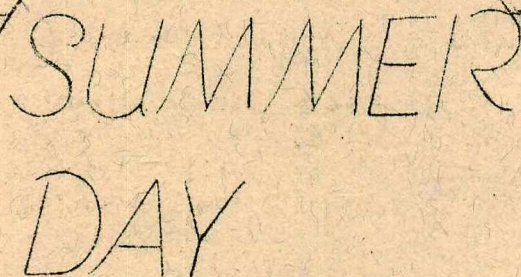 SUMMER
DAY